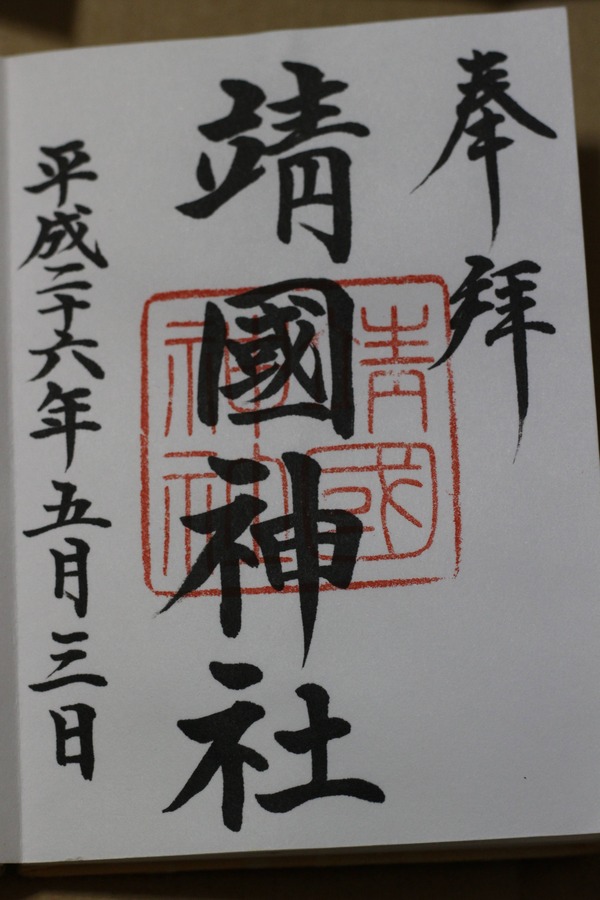 奉拝
靖國神社
靖國
神社
平成二十六年五月三日